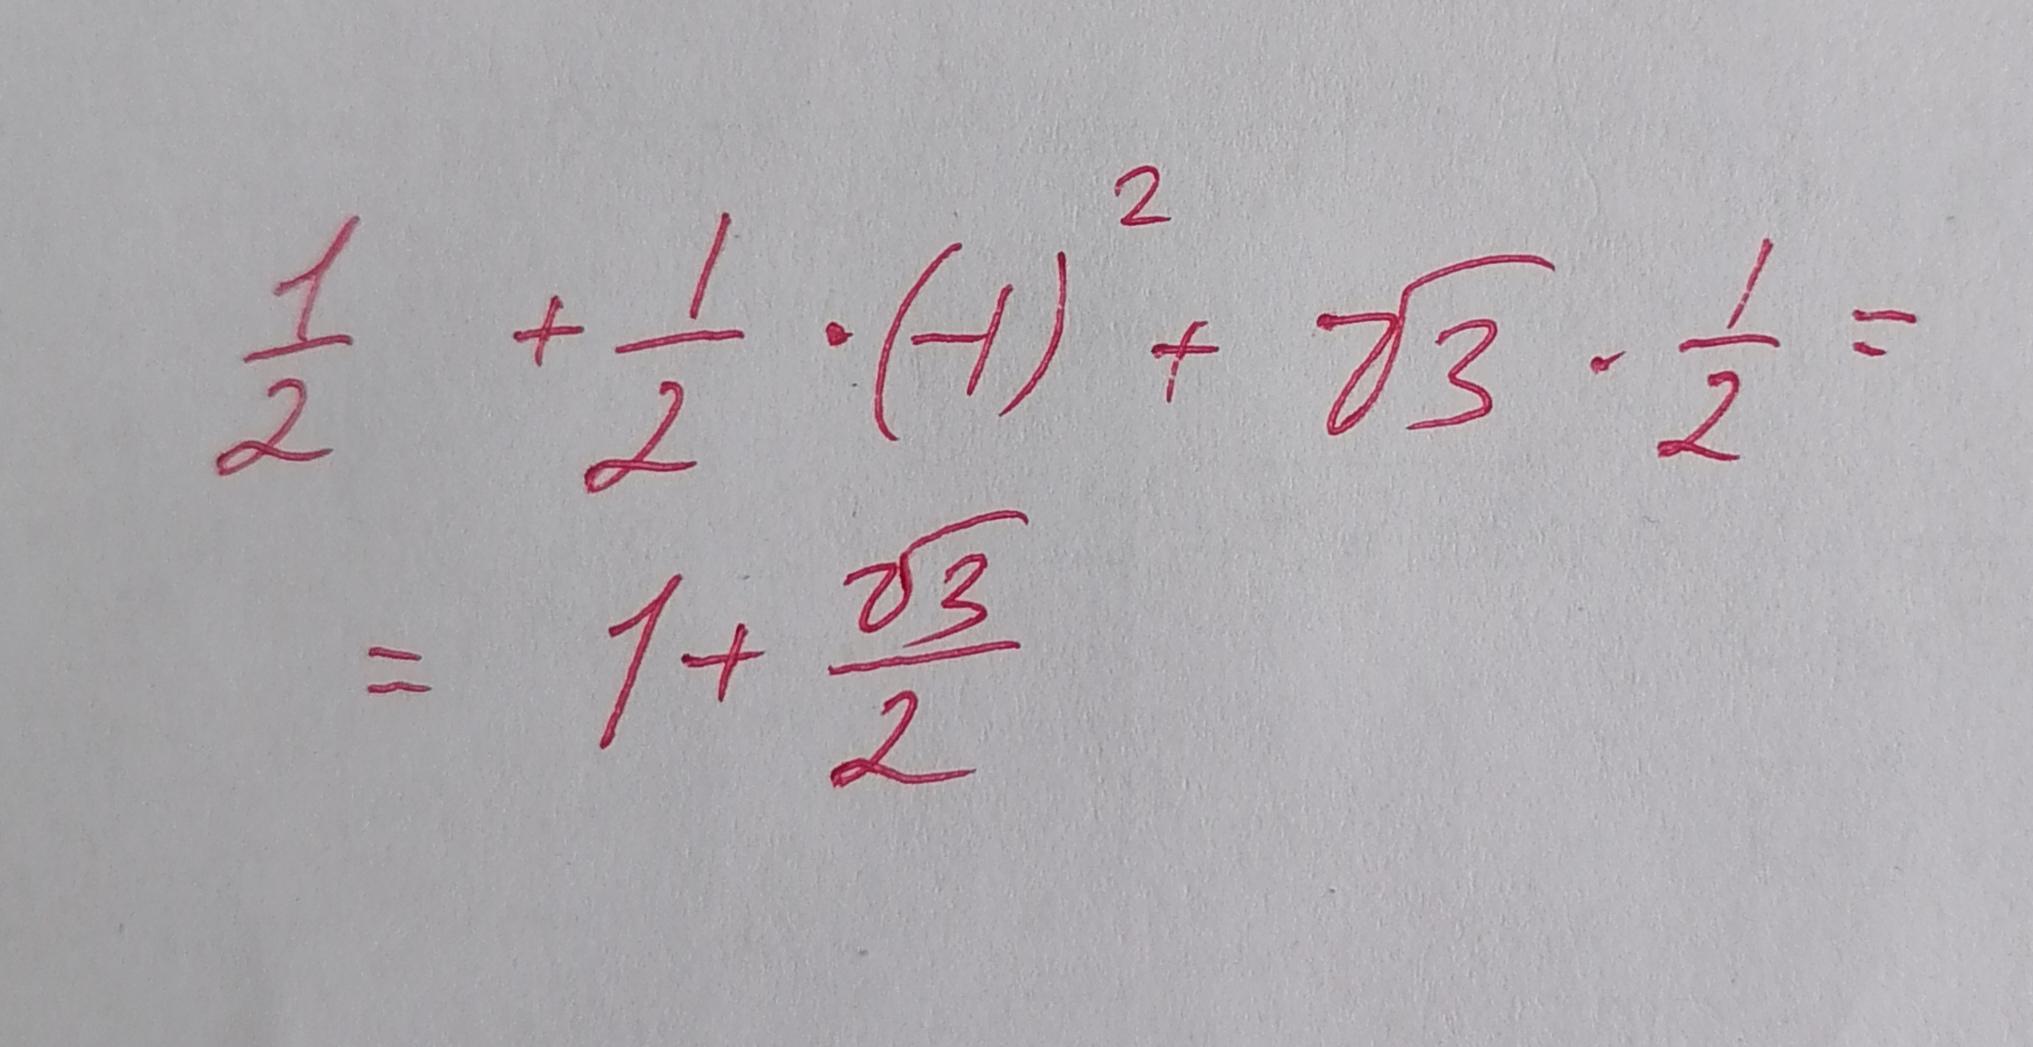 1/2 + 1/2 · (-1)² + √3 · 1/2 =
= 1 + √3/2